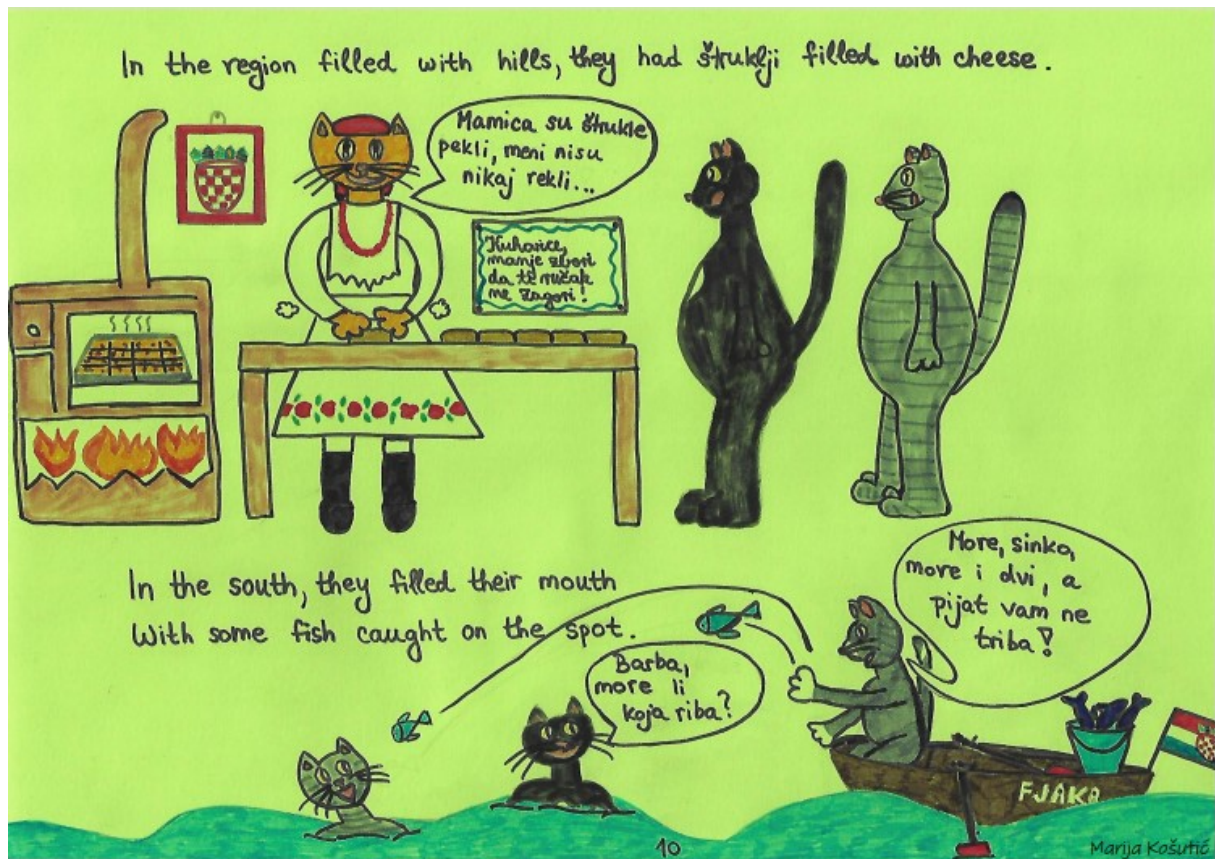 In the region filled with hills, they had štruklji filled with cheese.
Mamica su štrukle
pekli, meni nisu
nikaj rekli...
Kuharice,
manje zbori
da ti ručak
ne zagori!
In the south, they filled their mouth
With some fish caught on the spot.
More, sinko,
more i dvi, a
pijat vam ne
triba!
Barba,
more li
koja riba?
FJAKA
10
Marija Košutić